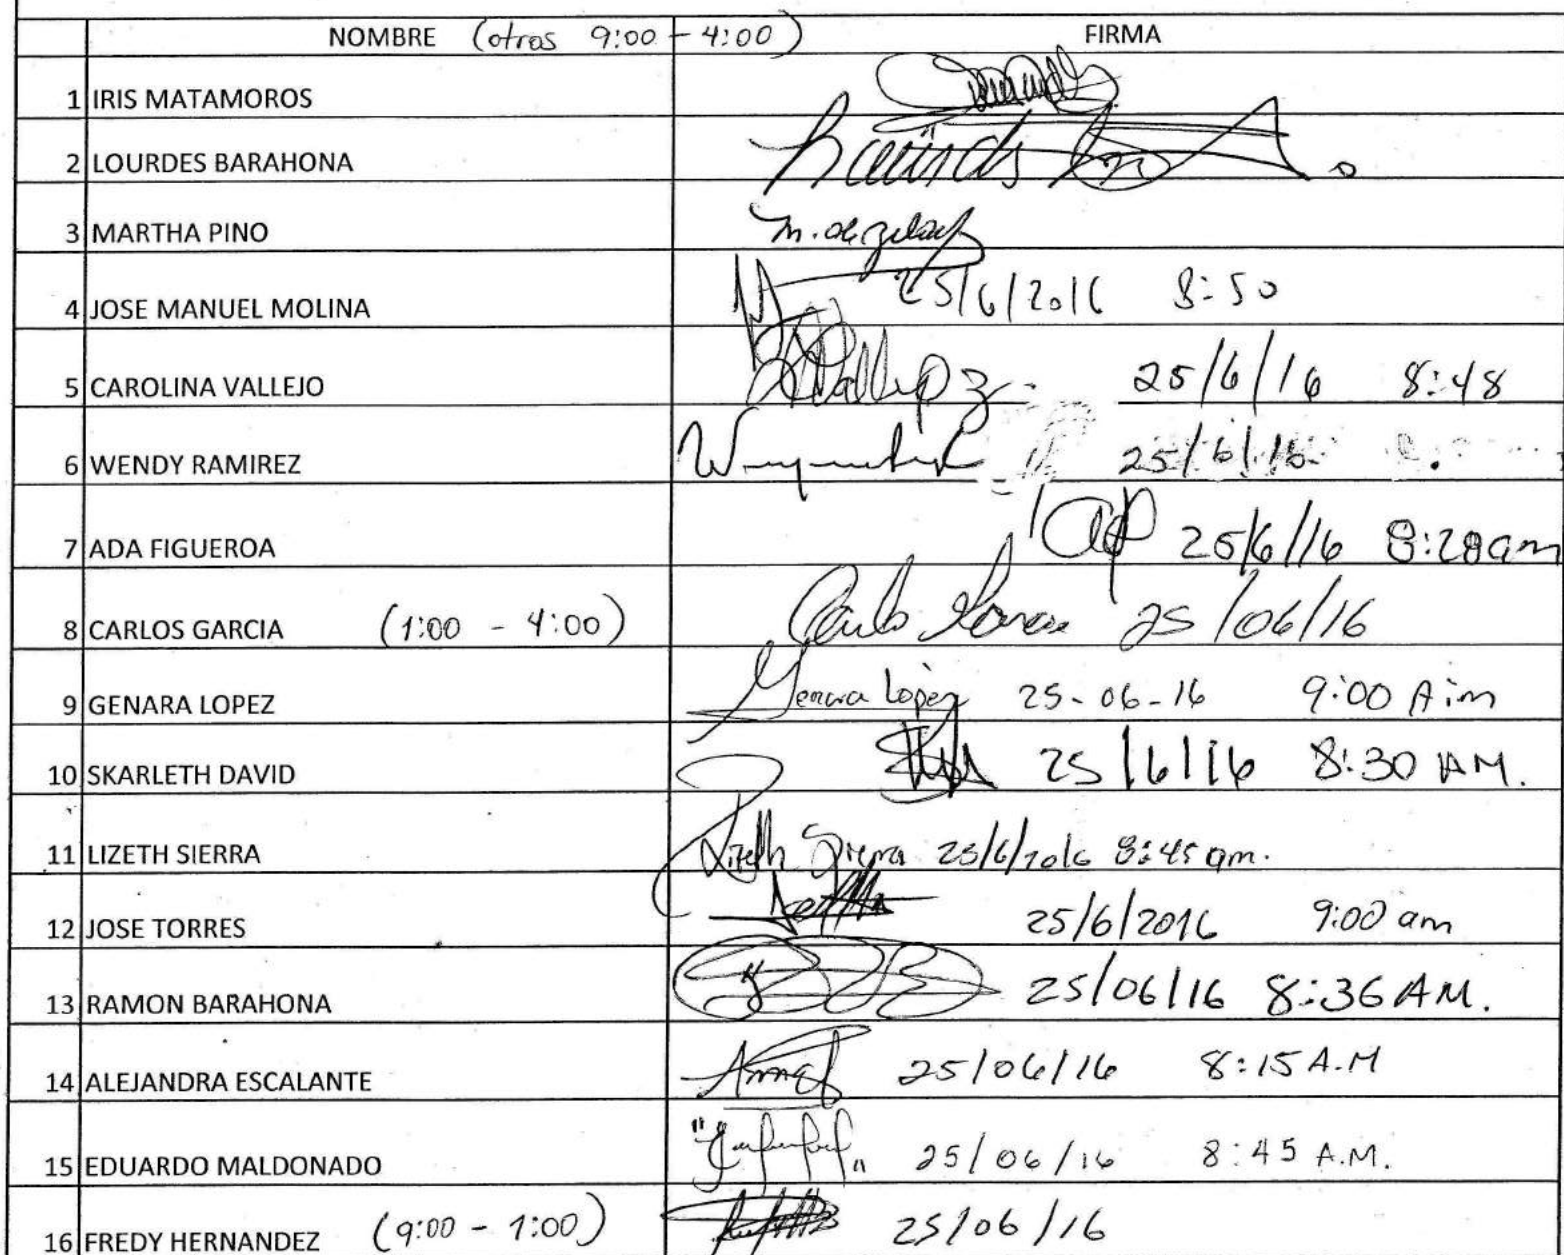 NOMBRE (otros 9:00 - 4:00) FIRMA
1 IRIS MATAMOROS
2 LOURDES BARAHONA
3 MARTHA PINO
4 JOSE MANUEL MOLINA 25/6/2016 8:50
5 CAROLINA VALLEJO 25/6/16 8:48
6 WENDY RAMIREZ 25/6/16
7 ADA FIGUEROA 25/6/16 8:28am
8 CARLOS GARCIA (1:00 - 4:00) 25/06/16
9 GENARA LOPEZ Genara Lopez 25-06-16 9:00 A:m
10 SKARLETH DAVID 25/6/16 8:30 AM.
11 LIZETH SIERRA Lizeth Sierra 25/6/2016 8:45 am.
12 JOSE TORRES 25/6/2016 9:00 am
13 RAMON BARAHONA 25/06/16 8:36 AM.
14 ALEJANDRA ESCALANTE 25/06/16 8:15 A.M
15 EDUARDO MALDONADO 25/06/16 8:45 A.M.
16 FREDY HERNANDEZ (9:00 - 1:00) 25/06/16